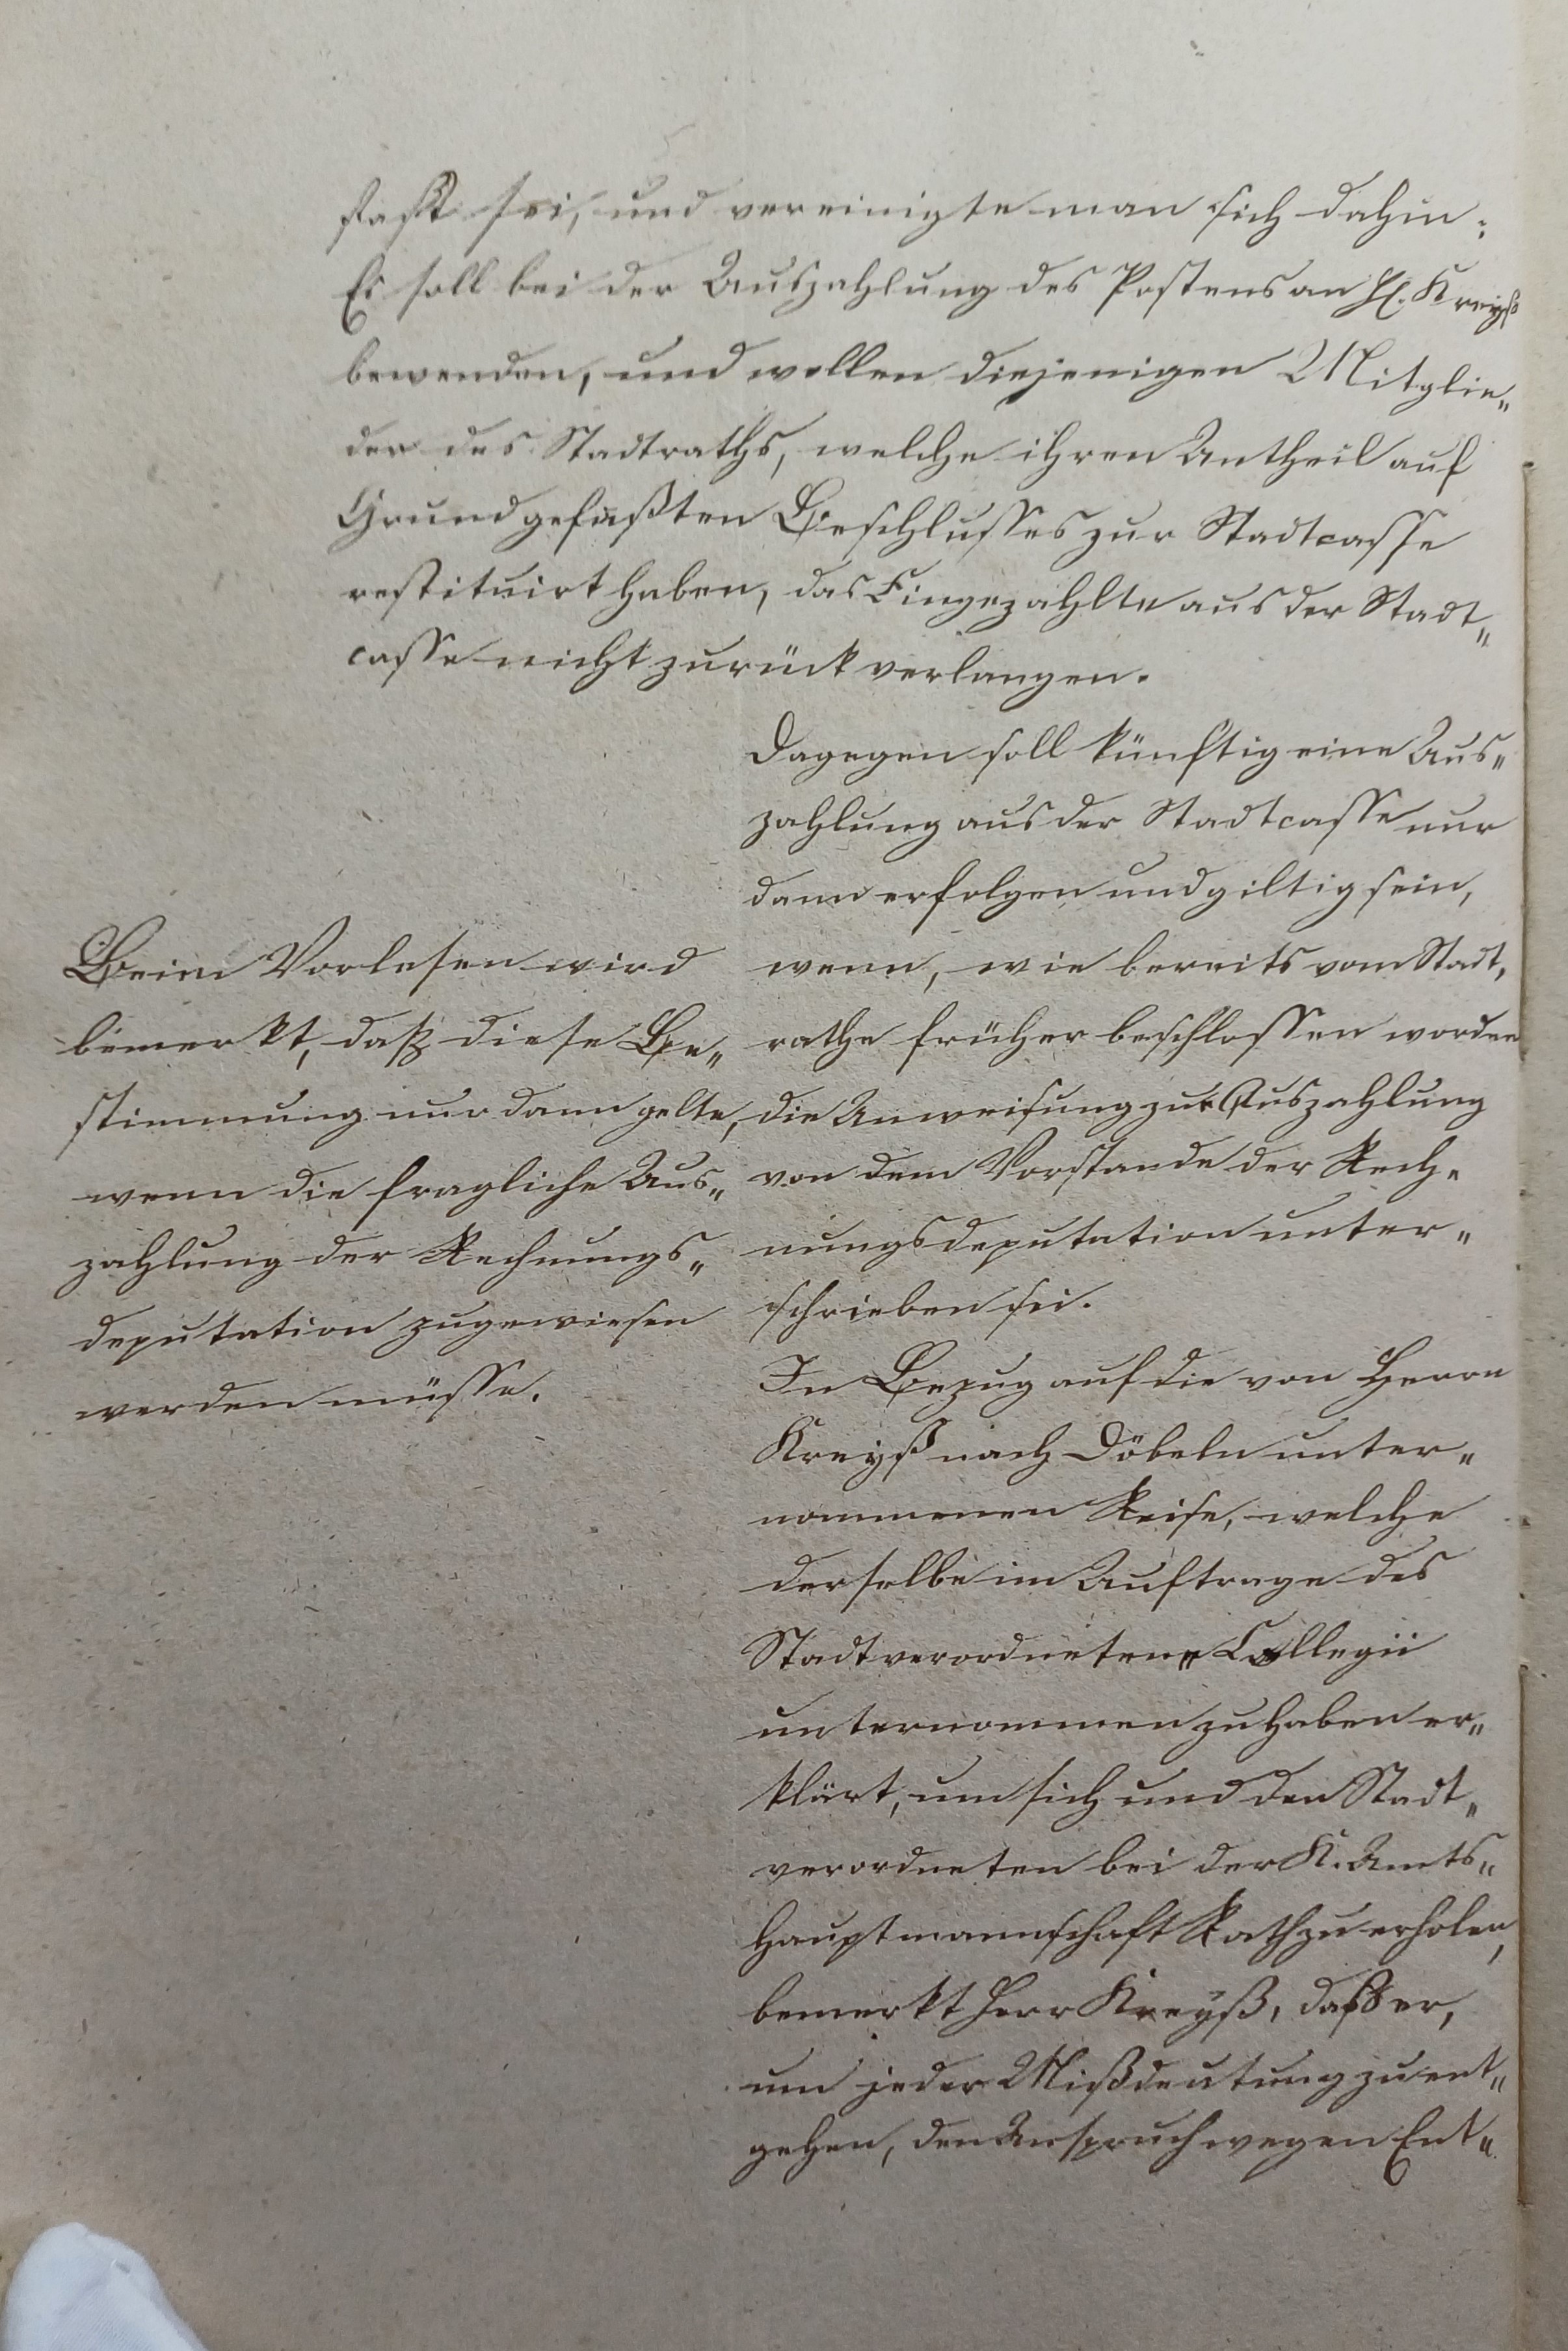 faßt sei, und vereinigte man sich dahin:
Es soll bei der Auszahlung des Postens an H. Kreyß
bewenden, und wollen diejenigen Mitglie„
der des Stadtraths, welche ihren Antheil auf
Grund gefaßten Beschlusses zur Stadtcasse
restituirt haben, das Eingezahlte aus der Stadt„
casse nicht zurück verlangen.
Dagegen soll künftig eine Aus„
zahlung aus der Stadtcasse nur
dann erfolgen und giltig sein,
wenn, wie bereits vom Stadt„
rathe früher beschlossen worden
die Anweisung zur Auszahlung
von dem Vorstande der Rech„
nungsdeputation unter„
schrieben sei.
Beim Vorlesen wird
bemerkt, daß diese Be„
stimmung nur dann gelte,
wenn die fragliche Aus„
zahlung der Rechnungs„
deputation zugewiesen
werden müsse.
In Bezug auf die von Herrn
Kreyß nach Döbeln unter„
nommenen Reise, welche
derselbe im Auftrage des
Stadtverordneten„Collegii
unternommen zu haben er„
klärt, um sich und den Stadt„
verordneten bei der K. Amts„
hauptmannschaft Rath zu erholen,
bemerkt Herr Kreyß, daß er,
um jeder Mißdeutung zu ent„
gehen, den Anspruch wegen Ent„